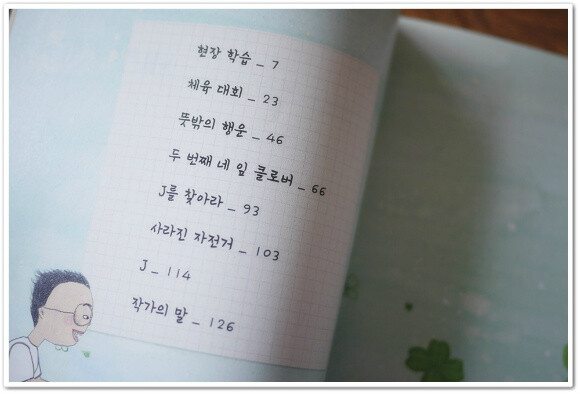 현장 학습 _ 7
체육 대회 _ 23
뜻밖의 행운 _ 46
두 번째 네 잎 클로버 _ 66
J를 찾아라 _ 93
사라진 자전거 _ 103
J _ 114
작가의 말 _ 126